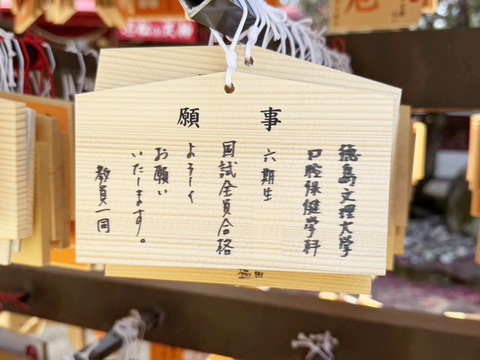 願事
徳島文理大学
口腔保健学科
六期生
国試全員合格
よろしく
お願い
いたします。
教員一同